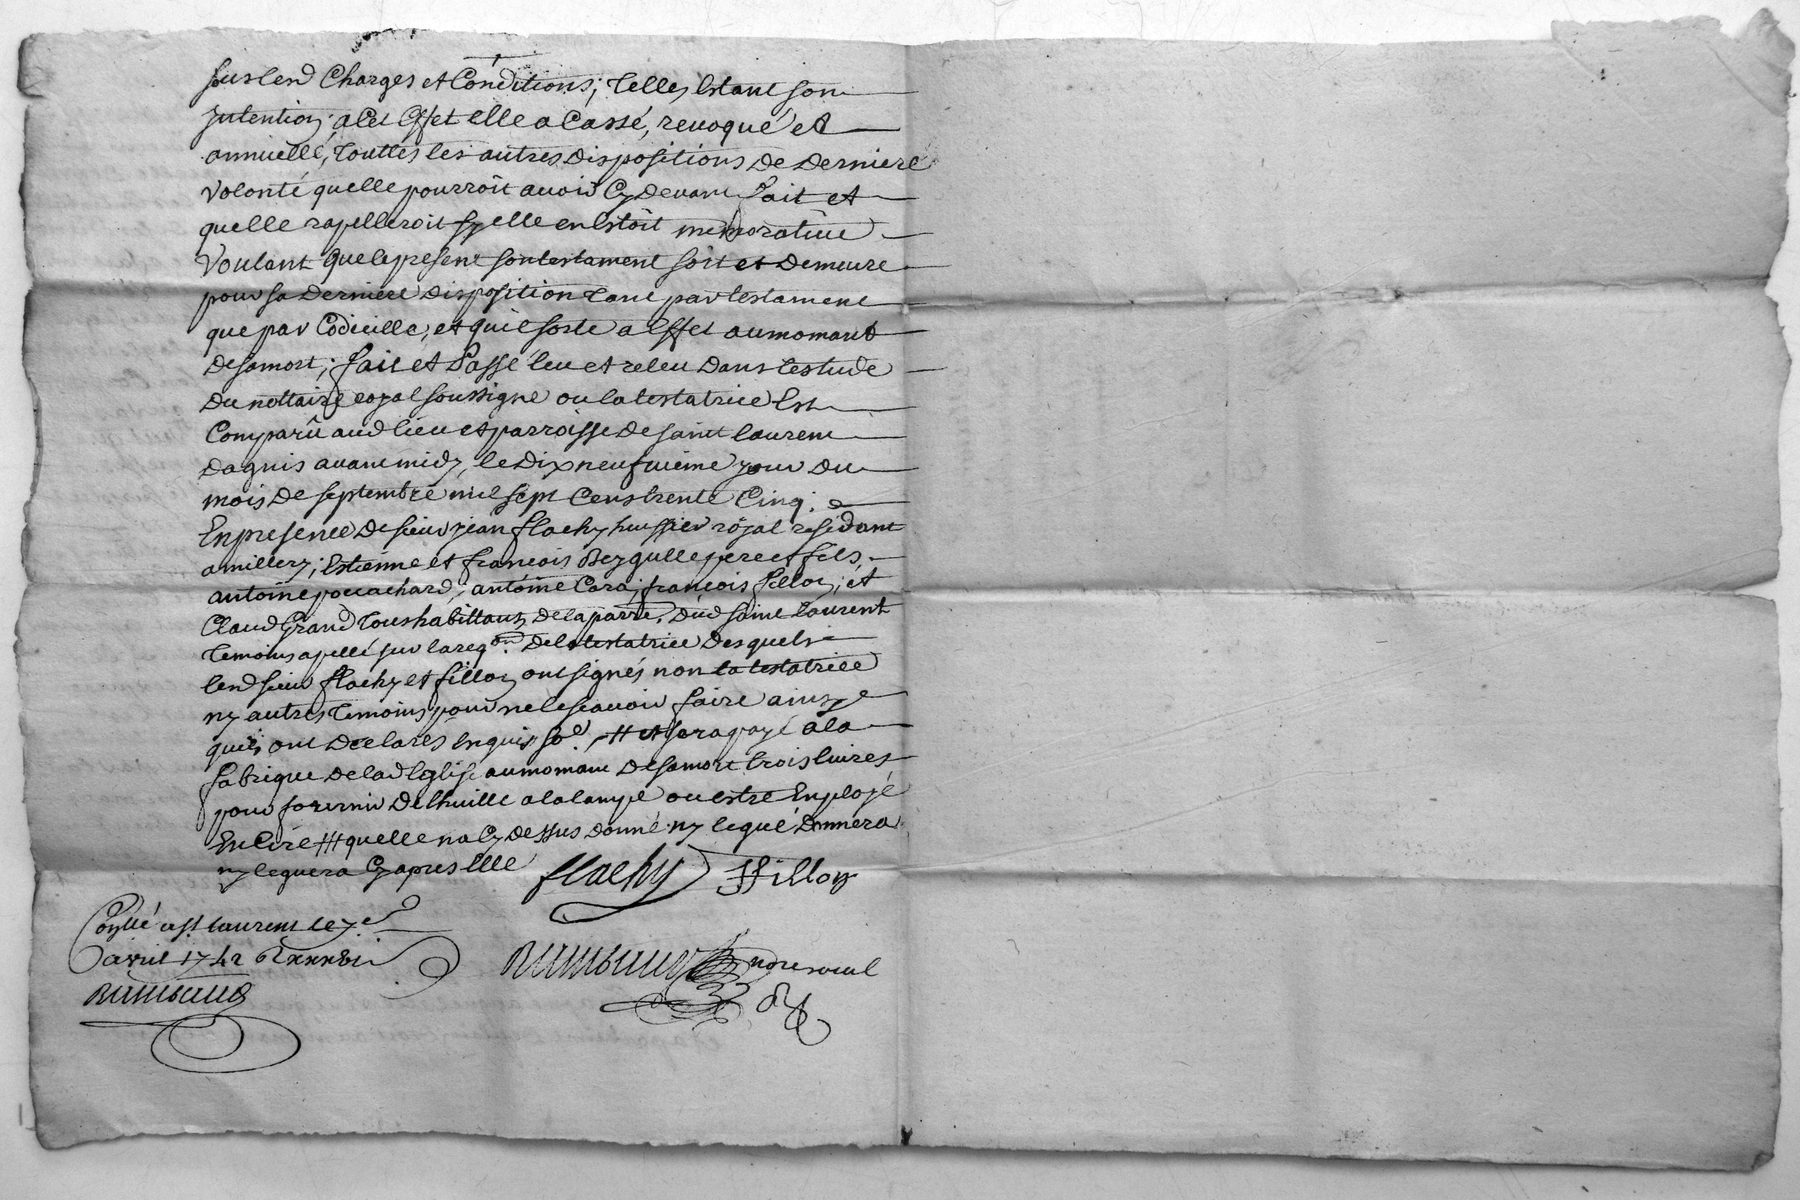 sus lend Charges et Conditions; telles Estant son
Intention; a Cet Effet elle a Cassé, revoqué et
annuellé, touttes les autres dispositions de derniere
volonté quelle pourroit avoir Cy devant fait et
quelle rapelleroit sy elle en Estoit memorative
Voulant que le present son testament soit et demeure
pour sa derniere disposition tant par testament
que par Codicille, et quil sorte a Effet au momant
de sa mort; fait et Passé leu et releu dans lestude
du nottaire royal soussigné ou la testatrice Est
Comparû aud lieu et parroisse de saint laurent
dagnis avant midy, le dix neufvieme jour du
mois de septembre mil sept Cens trente Cinq.
En presence de sieur jean flachy huissier röyal residant
a millery; Estienne et francois pere et fils,
antoine pouachard; antoine Cara; francois filloy; et
Claud Grand tous habittants de la parre. dud saint laurent
temoins apellé sur la reqon. de la testatrice desquels
lend sieur flachy et filloy ont signés non la testatrice
ny autres temoins pour ne le scavoir faire ainsy
quils ont declarés Enquis so. # et sera payé a la
fabrique de lad Eglise au momant de sa mort trois livres
pour fournir de lhuille a la lampe ou estre Employé
En Cire ## quelle na Cy dessus donné ny legué donnera
ny leguera Cy apres Elle
flachy ffilloy
Collé a st laurent le 7e
avril 1742